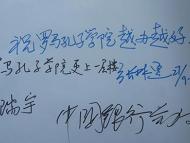 祝罗马孔子学院越办越好
马孔子学院更上一层楼
瑞宇
中国银行